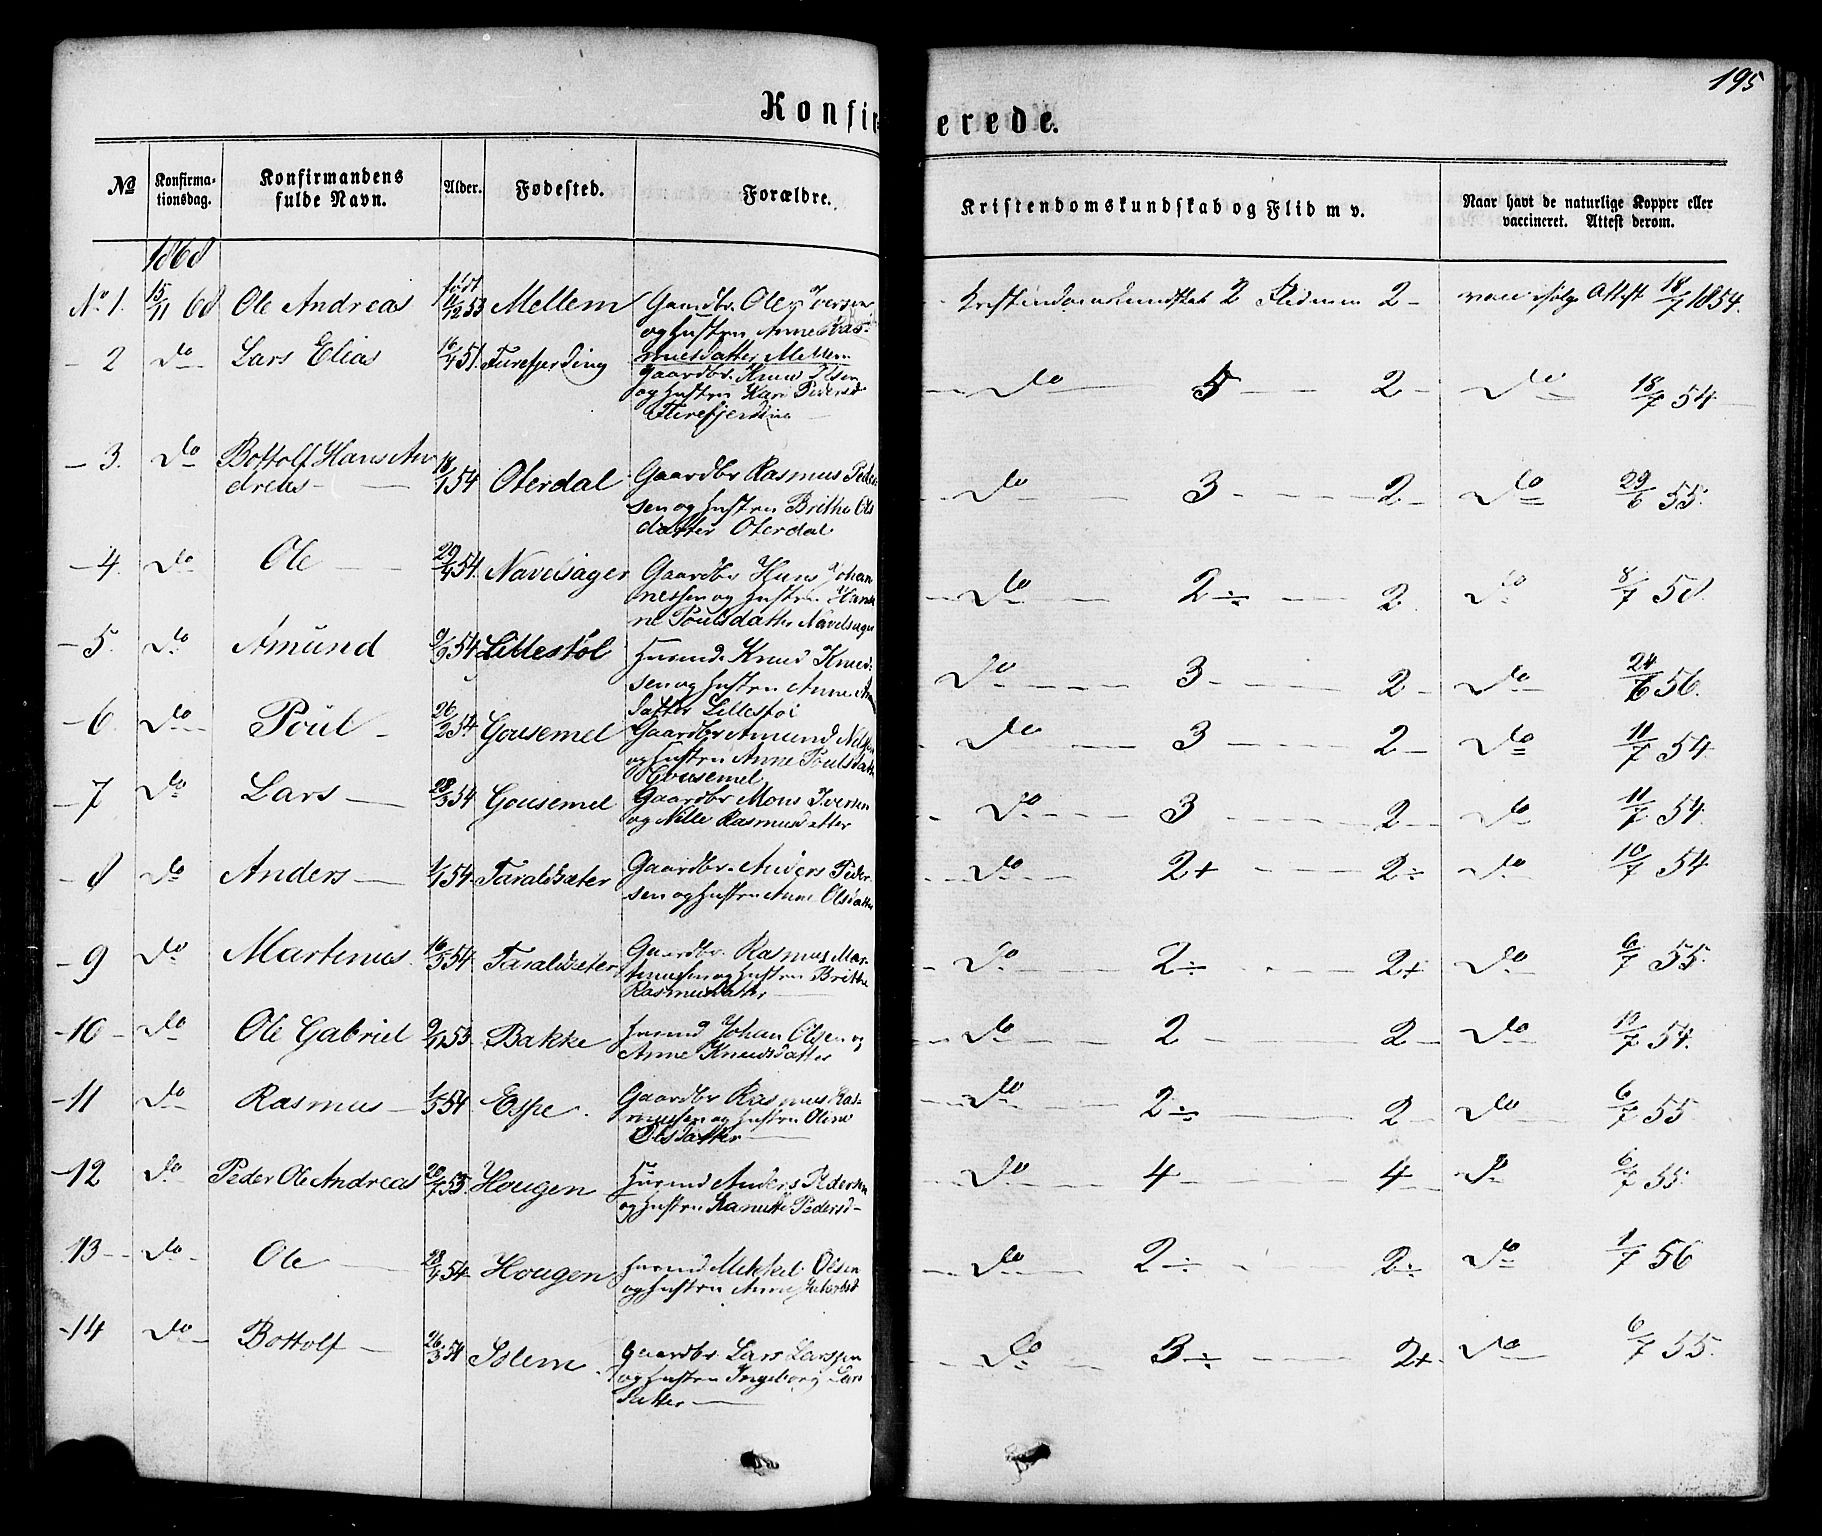 195
Konfir- erede.
№ Konfirma- Konfirmandens Alder. Fødested. Forældre. Kristendomskundskab og Flid m v. Naar havt de naturlige Kopper eller
tionsdag. fulde Navn. vaccineret. Attest derom.
1868
født
No 1. 15/11 68 Ole Andreas 11/12 53 Mellem Gaardbr. Ole Iversen Kristendomskundskab 2 Flid 2 - vacc. ifølge Attest 18/7 1854.
og Hustru Anne Ras-
musdatter Mellem
- 2 Do Lars Elias 16/4 51. Furefjerding Gaardbr. Knud Olsen Do 5 2 - Do 18/7 54
og Hustru Kari Pedersd
Furefjerding
- 3. Do Bottolf Hans An 18/1 54 Oterdal Gaardbr Rasmus Peder Do 3 2 Do 29/6 55.
dreas
sen og Hustru Brithe Ols
datter Oterdal
- 4. Do Ole 29/4 54. Navelsager Gaardbr Hans Johan Do 2 ÷ 2 Do 8/7 58.
nessen og Hustru Han
ne Poulsdatter Navelsager
- 5. Do Amund 9/9 54 Lillestøl Huusmd. Knud Knud- Do 3 2 - Do 24/6 56.
sen og Hustru Anne
datter Lillestøl
- 6. Do Poul 26/2 54 Gousemel Gaardbr Amund Nilsen Do 3 2 - Do 11/7 54.
og Hustru Anne Poulsdatter
Gousemel
- 7 Do Lars 28/3 54 Gousemel Gaardbr Mons Iversen Do 3 2 - Do 11/7 54.
og Nille Rasmusdatter
- 8 Do Anders 1/1 54. Taraldsæter Gaardbr. Anders Peder- Do 2+ 2 ÷ Do 10/7 54
sen og Hustru Anne Olsdatter
- 9 Do Martinus. 16/5 54. Taraldsæter Gaardbr. Rasmus Mar- Do 2 ÷ 2+ Do 6/7 55.
tinussen og Hustru Brithe
Rasmusdatter
- 10 - Do Ole Gabriel 9/11 53 Bakke Huusmd Johan Olsen og Do 2 2 - Do 10/7 54.
Anne Knudsdatter
- 11 Do Rasmus 1/5 54 Espe. Gaardbr Rasmus Ras- Do 2 ÷ 2 - Do 6/7 55
mussen og Hustru Oline
Olsdatter
- 12 Do Peder Ole Andreas 20/7 53 Hougen Huusmd Anders Pedersen Do 4 4 - Do 6/7 55.
og Hustru Pedersd-
13 - Do Ole 28/4 54. Hougen Huusmd Mikkel Olsen Do 2 ÷ 2 ÷ Do 1/7 56
og Hustru Anne
- 14 Do Bottolf 26/3 54 Solem Gaardbr Lars Larssen Do 3 ÷ 2+ Do 6/7 55.
og Hustru Ingeborg Lars
datter